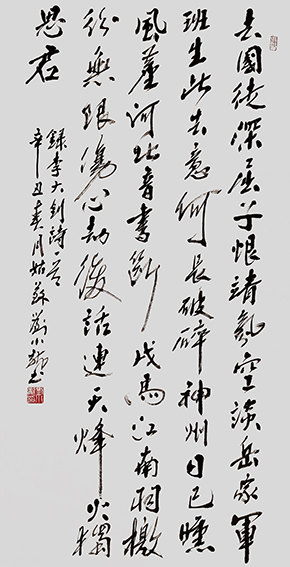 去國徒深屈子恨靖氛空談岳家軍
班生此去意何長破碎神州日已曛
風塵河北音書斷戎馬江南羽檄
紛無限傷心劫後話連天烽火獨
思君
錄李大釗詩一首
辛丑春月姑蘇劉小書